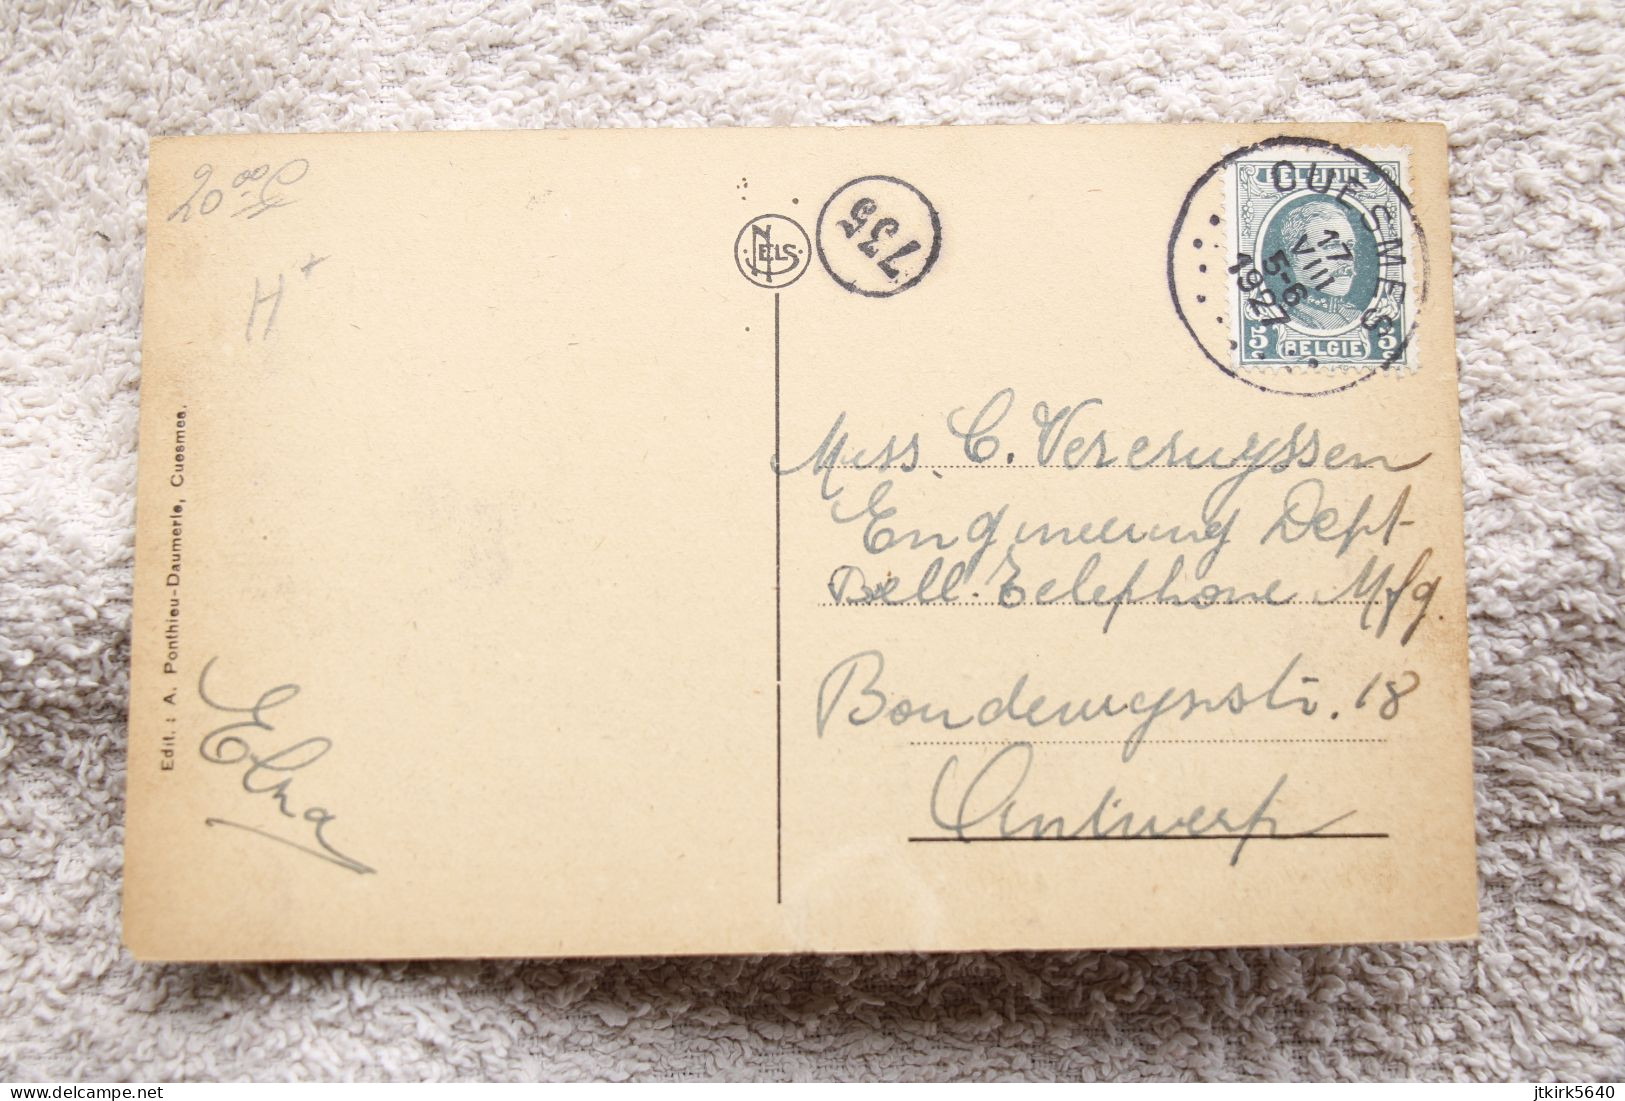 H+
Edit. : A. Ponthieu-Daumerie, Cuesmes.
Elna
NELS
735
BELGIQUE
5 BELGIE 5
CUESMES
17
VIII
5-6
1927
Miss. C. Vereruyssen
Engineering Dept
Bell. Telephone Mfg.
Boudewynstr. 18
Antwerp
delcampe.net
jtkirk5640